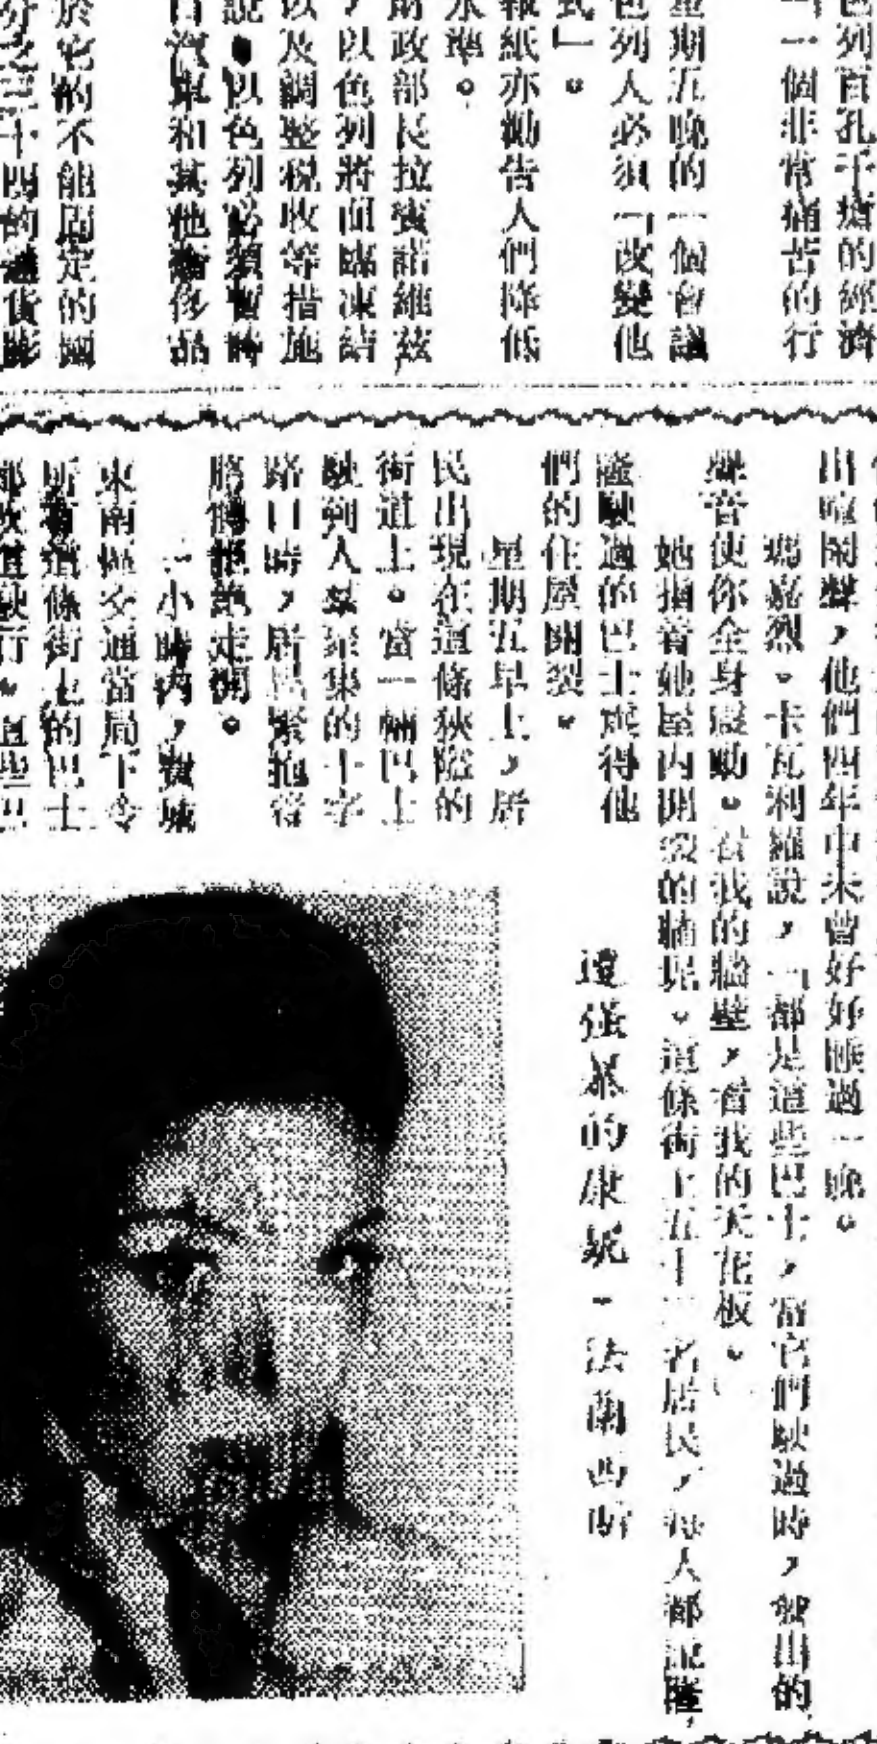 色列百孔千瘡的經濟
「一個非常痛苦的行
星期五晚的一個會議
色列人必須「改變他
式」。
報紙亦勸告人們降低
水準。
財政部長拉賓諾維茲
，以色列將面臨凍結
以及調整稅收等措施
說，以色列必須暫時
口汽車和其他奢侈品
於它的不能固定的國
分之三十四的通貨膨
出喧鬧聲，他們四年中未曾好好睡過一晚。
瑪嘉烈。卡瓦利羅說，「都是這些巴士，當它們駛過時，發出的
聲音使你全身震動。看我的牆壁，看我的天花板。」
她指着她屋內開裂的牆 。這條街上五十 名居民，每人都說隆
隆駛過的巴士 得他
們的住屋開裂。
星期五早上，居
民出現在這條狹隘的
街道上。當一輛巴士
駛到人羣聚集的十字
路口時，居民緊抱
一小時內，費城
東南區交通當局下令
所有這條街上的巴士
都改道駛行。這些巴
遭强暴的康妮。法蘭西斯